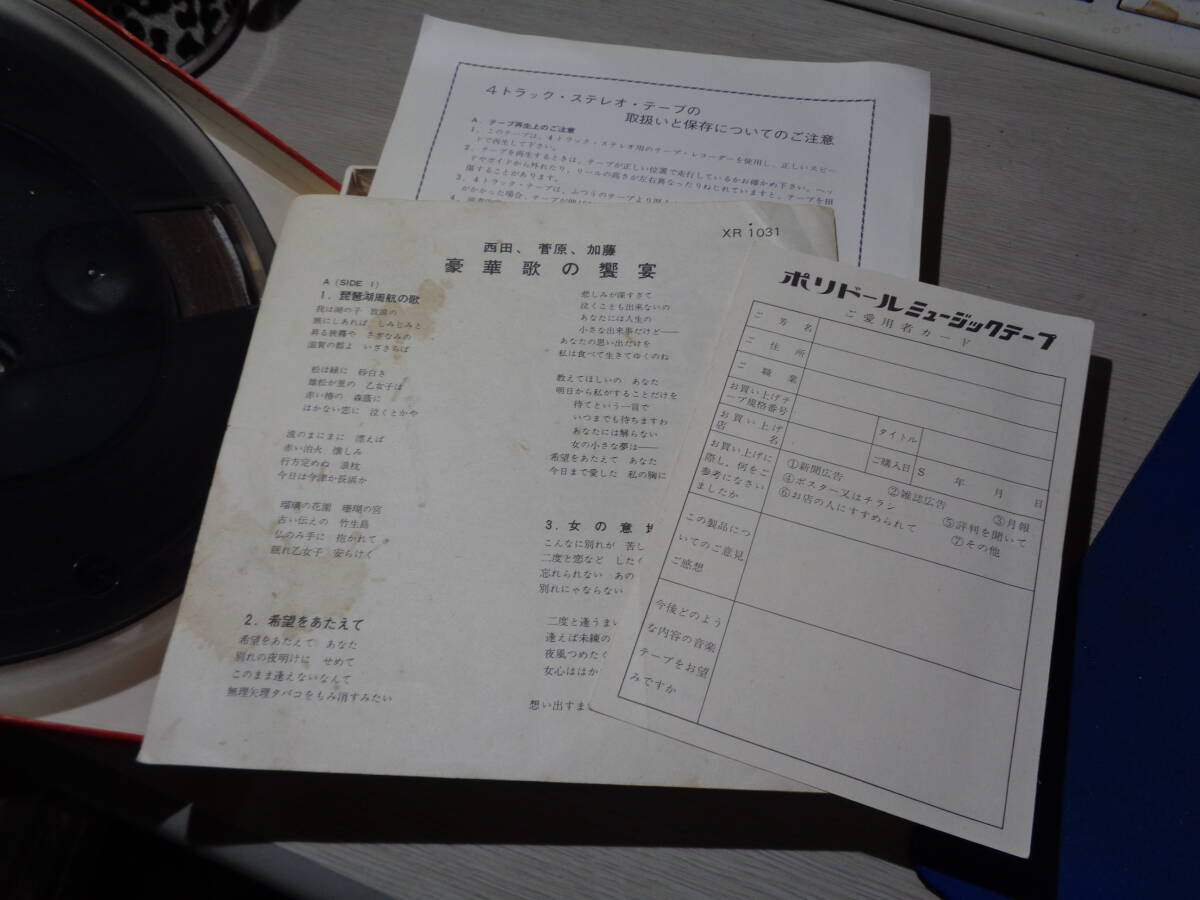 4トラック・ステレオ・テープの
取扱いと保存についてのご注意
A. テープ再生上のご注意
1. このテープは、4トラック・ステレオ用のテープ・レコーダーを使用し、正しいスピー
ドで再生して下さい。
2. テープを再生するときは、テープが正しい位置で走行しているかお確かめ下さい。ヘッ
ドやガイドから外れたり、リールの高さが左右異なったりねじれていますと、テープを損
傷することがあります。
3. 4トラック・テープは、ふつうのテープより
がかかった場合、テープが
4.
XR 1031
西田、菅原、加藤
豪華歌の饗宴
A (SIDE 1)
1. 琵琶湖周航の歌
我は湖の子 放浪の
旅にしあれば しみじみと
昇る狭霧や さざなみの
滋賀の都よ いざさらば
松は緑に 砂白き
雄松が里の 乙女子は
赤い椿の 森蔭に
はかない恋に 泣くとかや
波のまにまに 漂えば
赤い泊火 懐しみ
行方定めぬ 浪枕
今日は今津か長浜か
瑠璃の花園 珊瑚の宮
古い伝えの 竹生島
仏のみ手に 抱かれて
眠れ乙女子 安らけく
2. 希望をあたえて
希望をあたえて あなた
別れの夜明けに せめて
このまま逢えないなんて
無理矢理タバコをもみ消すみたい
悲しみが深すぎて
泣くことも出来ないの
あなたには人生の
小さな出来事だけど——
あなたの思い出だけを
私は食べて生きてゆくのね
教えてほしいの あなた
明日から私がすることだけを
待てという一言で
いつまでも待ちますわ
あなたには解らない
女の小さな夢は——
希望をあたえて あなた
今日まで愛した 私の胸に
3. 女の意地
こんなに別れが 苦し
二度と恋など したく
忘れられない あの
別れにゃならない
二度と逢うまい
逢えば未練の
夜風つめたく
女心ははか
想い出すまい
ポリドールミュージックテープ
ご愛用者カード
ご芳名
ご住所
ご職業
お買い上げテ
ープ規格番号
お買い上げ
店名
タイトル
ご購入日
S 年 月 日
お買い上げに
際し、何をご
参考になさい
ましたか
①新聞広告 ②雑誌広告 ③月報
④ポスター又はチラシ ⑤評判を聞いて
⑥お店の人にすすめられて ⑦その他
この製品につ
いてのご意見
ご感想
今後どのよう
な内容の音楽
テープをお望
みですか